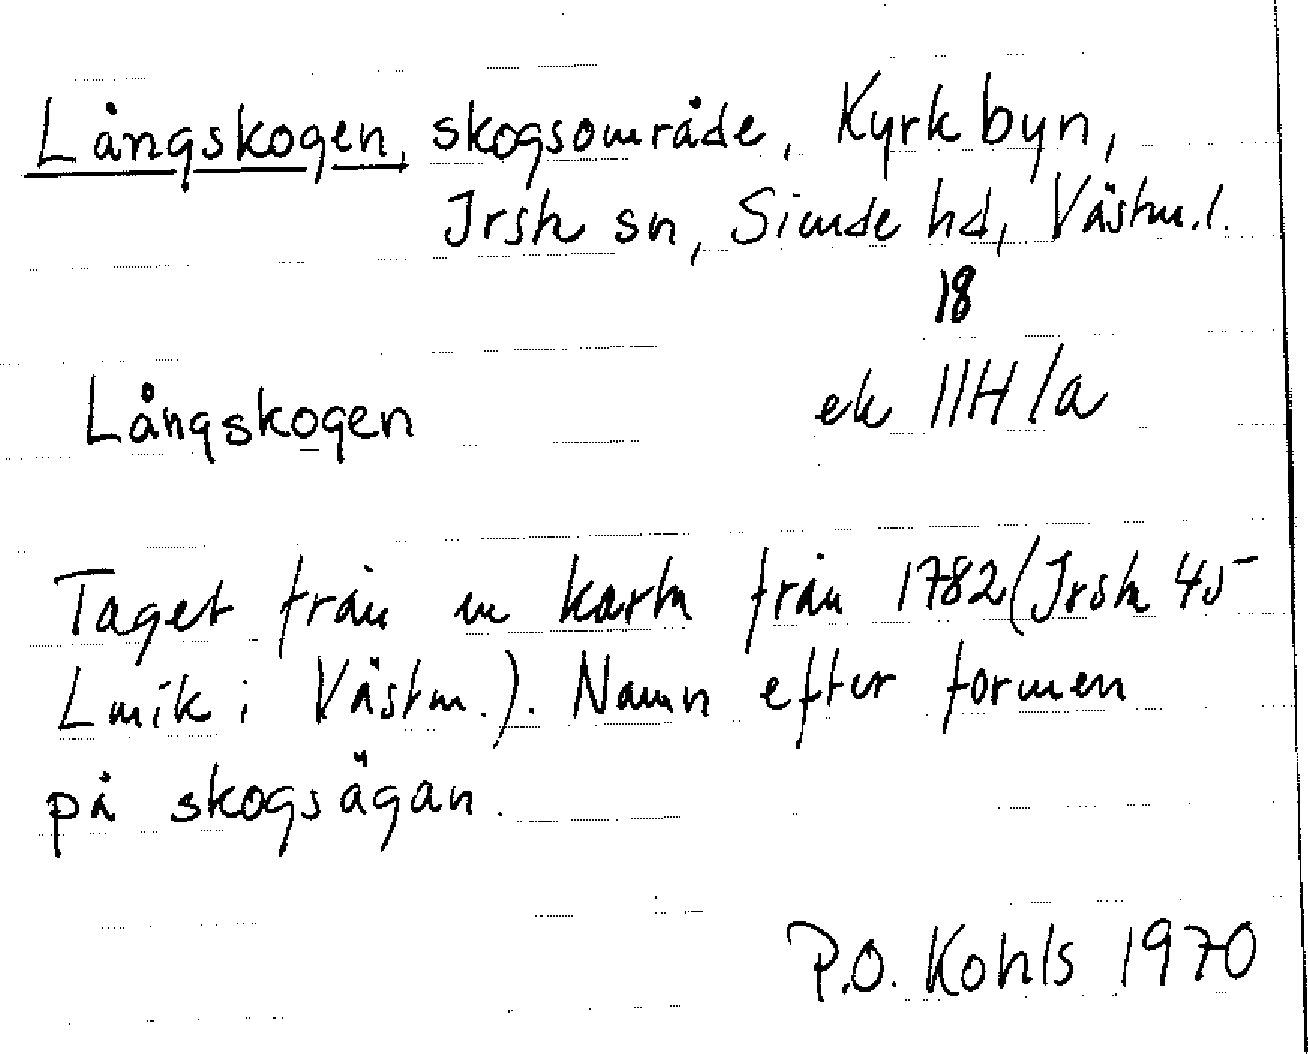 Långskogen, skogsområde, Kyrkbyn,
Irsta sn, Siende hd, Västm.l.
18
Långskogen ek 11H/a
Taget från en karta från 1782 (Irsta 45
Lmk i Västm.). Namn efter formen
på skogsägan.
P.O. Kohls 1970